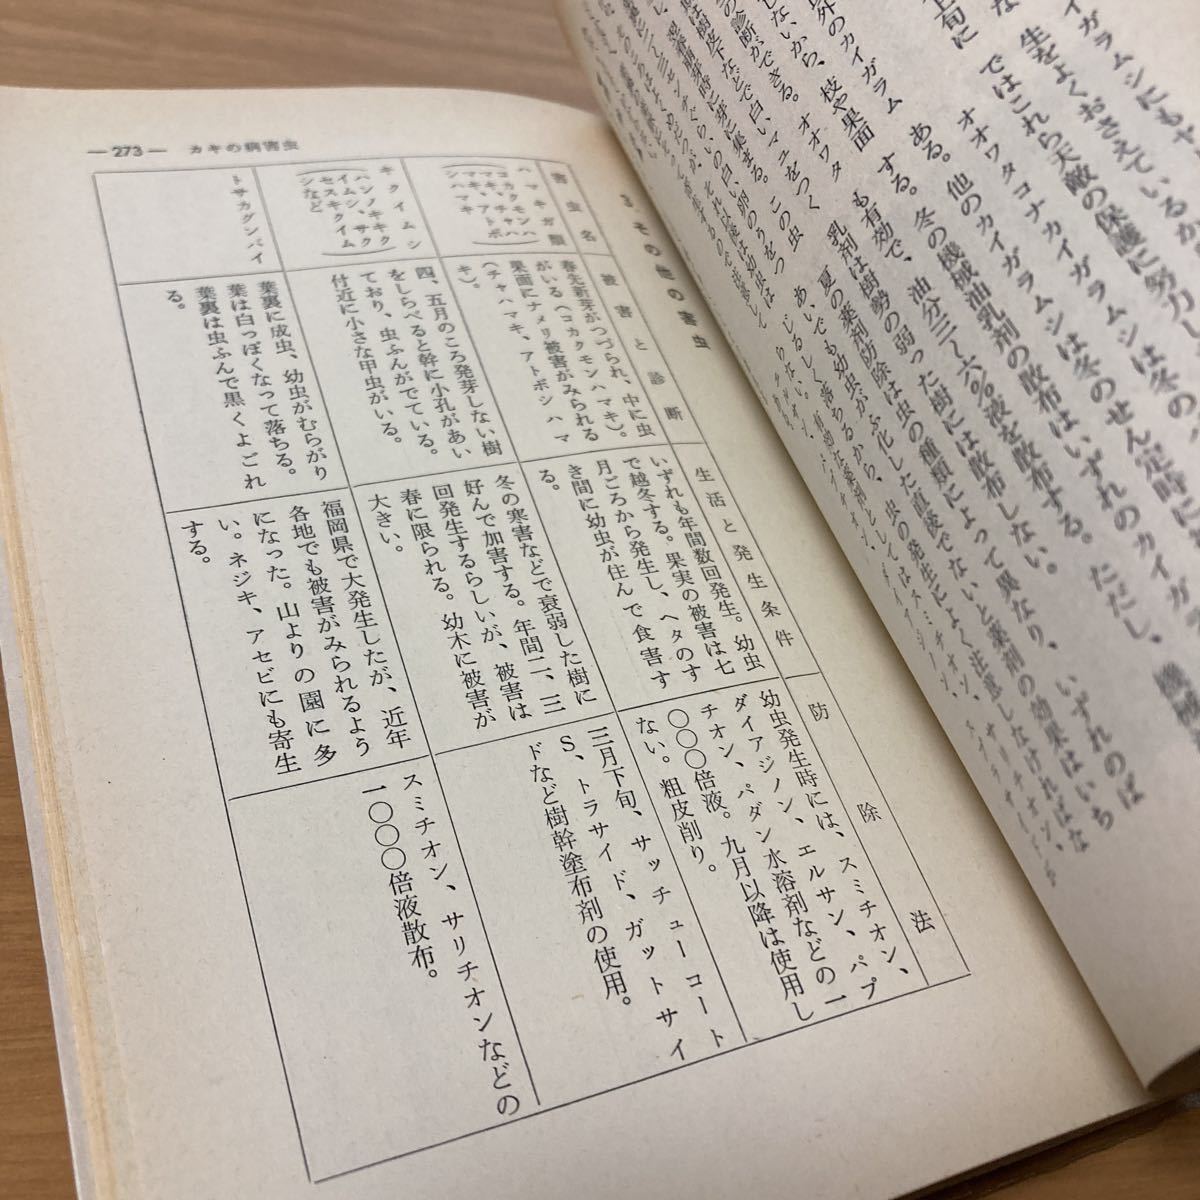 —273— カキの病害虫
3. その他の害虫
害虫名
被害と診断
生活と発生条件
防除法
ハマキガ類
(コカクモンハ
マキ、チャハ
マキ、アトボ
シハマキ)
春先新芽がつづられ、中に虫
がいる(コカクモンハマキ)。
果面にナメリ被害がみられる
(チャハマキ、アトボシハマ
キ)。
いずれも年間数回発生。幼虫
で越冬する。果実の被害は七
月ごろから発生し、ヘタのす
き間に幼虫が住んで食害す
る。
幼虫発生時には、スミチオン、
ダイアジノン、エルサン、パプ
チオン、パダン水溶剤などの一
〇〇〇倍液。九月以降は使用し
ない。粗皮削り。
キクイムシ
(ハンノキキク
イムシ、サク
セスキクイム
シなど)
四、五月のころ発芽しない樹
をしらべると幹に小孔があい
ており、虫ふんがでている。
付近に小さな甲虫がいる。
冬の寒害などで衰弱した樹に
好んで加害する。年間二、三
回発生するらしいが、被害は
春に限られる。幼木に被害が
大きい。
三月下旬、サッチューコート
S、トラサイド、ガットサイ
ドなど樹幹塗布剤の使用。
トサカグンバイ
葉裏に成虫、幼虫がむらがり
葉は白っぽくなって落ちる。
葉裏は虫ふんで黒くよごれ
る。
福岡県で大発生したが、近年
各地でも被害がみられるよう
になった。山よりの園に多
い。ネジキ、アセビにも寄生
する。
スミチオン、サリチオンなどの
一〇〇〇倍液散布。
イガラムシにもヤ
生をよくおさえているか
ではこれら天敵の保護に努力し
オオワタコナカイガラムシは冬の
ある。他のカイガラムシは冬のせん定時に
冬の機械油乳剤の散布はいずれのカイガ
する。油分三〜六%液を散布する。ただし、機械
も有効で、樹勢の弱った樹には散布しない。
夏の薬剤防除は虫の種類によって異なり、いずれのば
あいでも幼虫がふ化した直後でないと薬剤の効果はいち
じるしく落ちるから、虫の発生によく注意しなければな
らない。
上旬に
外のカイガラム
しないから、枝や果面
の診断ができる。オオワタ
は樹皮下などで白いマユをつく